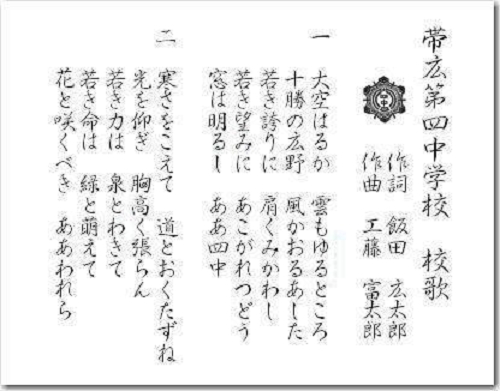 帯広第四中学校 校歌
作詞 飯田 広太郎
作曲 工藤 富太郎
一
大空はるか 雲もゆるところ
十勝の広野 風かおるあした
若き誇りに 肩くみかわし
若き望みに あこがれつどう
窓は明るし ああ四中
二
寒さをこえて 道とおくたずね
光を仰ぎ 胸高く張らん
若き力は 泉とわきて
若き命は 緑と萌えて
花と咲くべき ああわれら